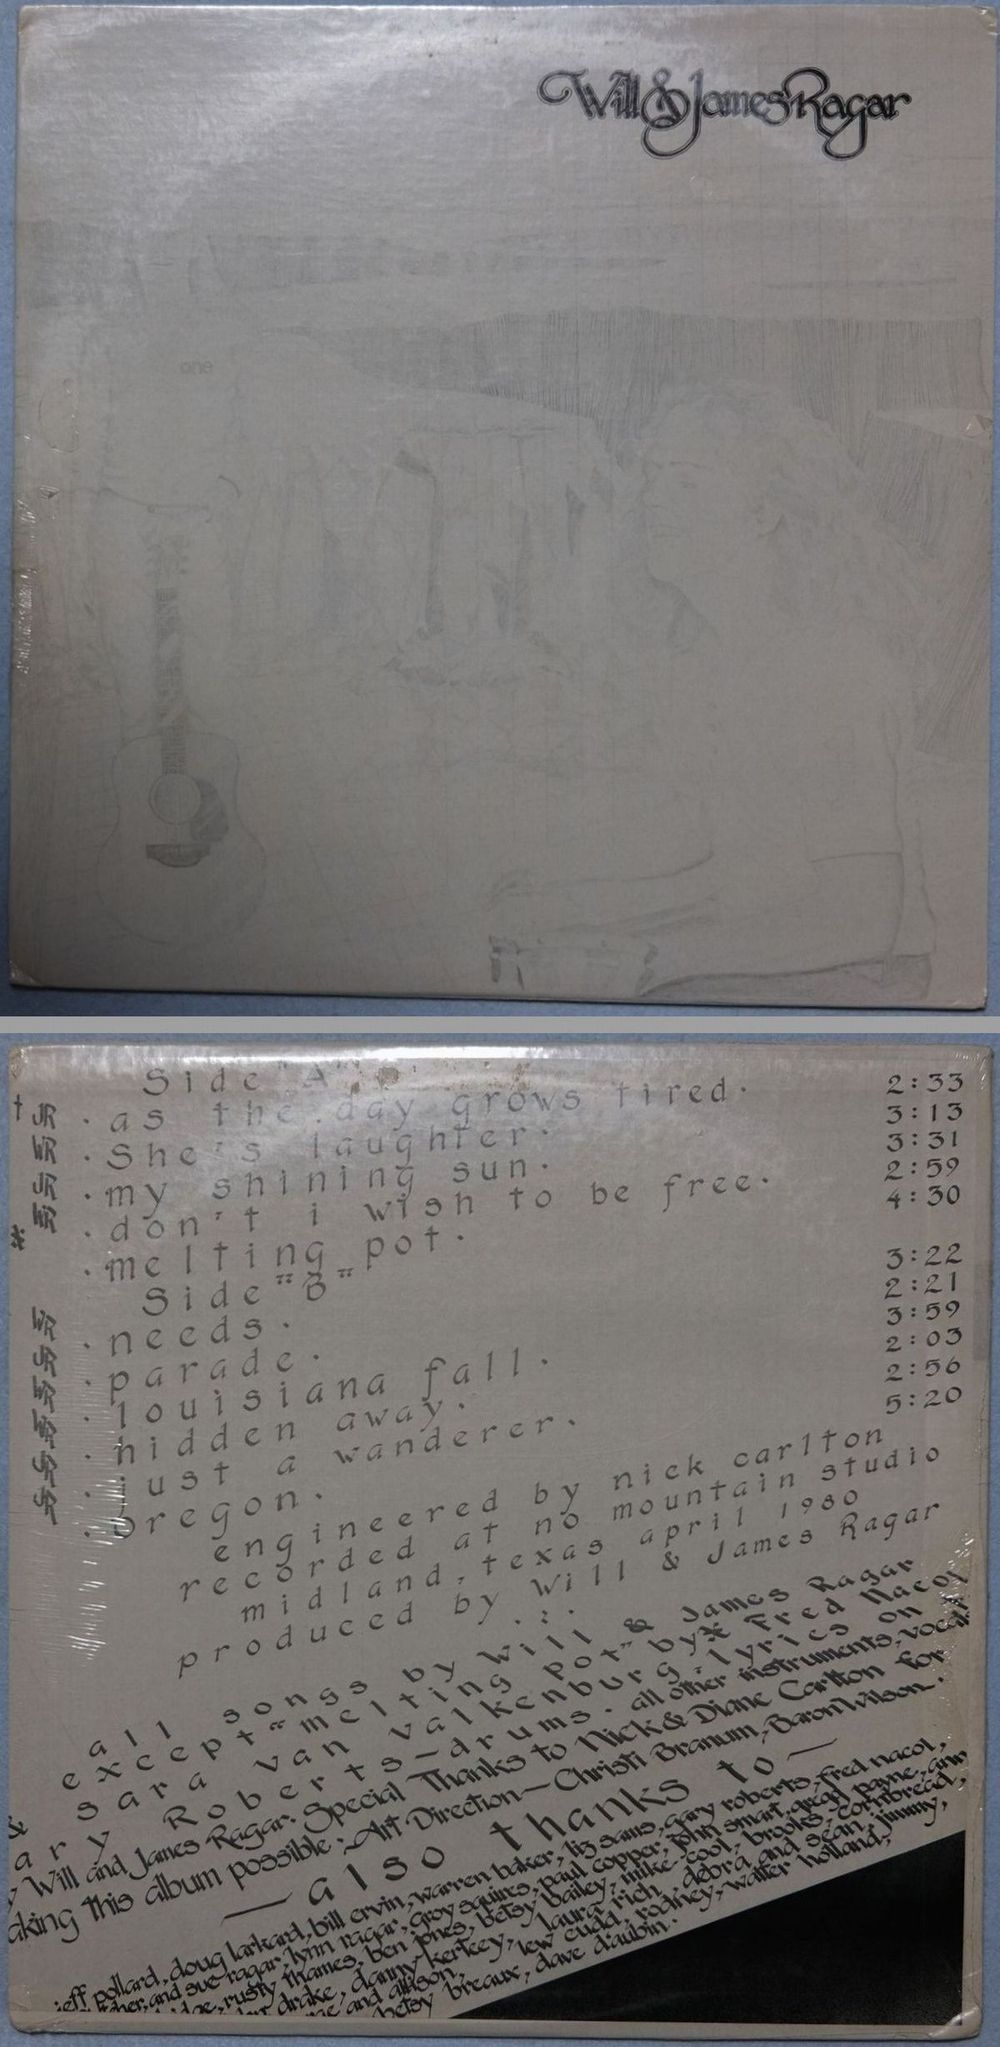 Will & James Ragar
one
Side "A"
. as the day grows tired. 2:33
. She's laughter. 3:13
. my shining sun. 3:31
. don't i wish to be free. 2:59
. melting pot. 4:30
Side "B"
. needs. 3:22
. parade. 2:21
. louisiana fall. 3:59
. hidden away. 2:03
. just a wanderer. 2:56
. oregon. 5:20
engineered by nick carlton
recorded at no mountain studio
midland, texas april 1980
produced by Will & James Ragar
all songs by Will & James Ragar
except "melting pot" by Fred Nacol
& sara van valkenburg. lyrics on
ary Roberts-drums. all other instruments, vocals
y Will and James Ragar. Special Thanks to Nick & Diane Carlton for
aking this album possible. Art Direction — Christi Branum, Baron Wilson.
— also thanks to —
jeff pollard, doug larkard, bill ervin, warren baker, liz sams, gary roberts, fred nacol,
and sue ragar, lynn ragar, croy squires, paul copper, john smart, grad payne, ann
rusty thames, ben jones, betsy bailey, mike cool, brooks, cornbread,
drake, danny kerksey, laura rich, debra and sean, jimmy,
and allison, lew cudd, rodney, walter holland,
betsy breaux, dave d'aubin.